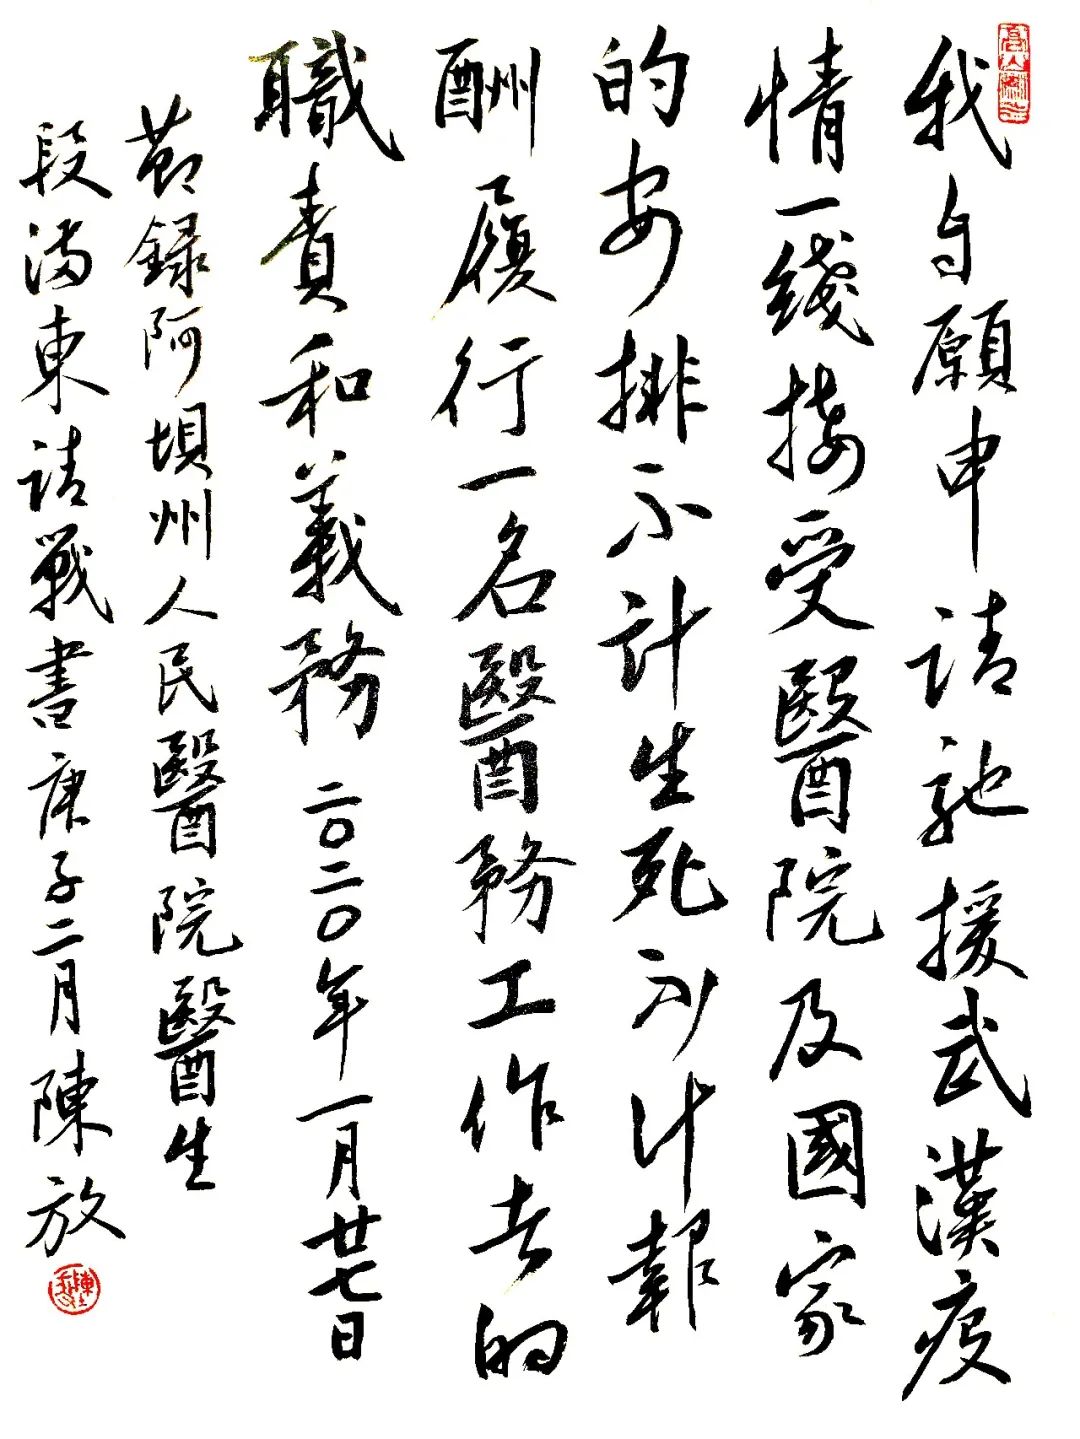 我自願申請馳援武漢疫
情一綫接受醫院及國家
的安排不計生死不計報
酬履行一名醫務工作者的
職責和義務 二〇二〇年一月廿七日
節録阿坝州人民醫院醫生
段满東請戰書庚子二月陳放